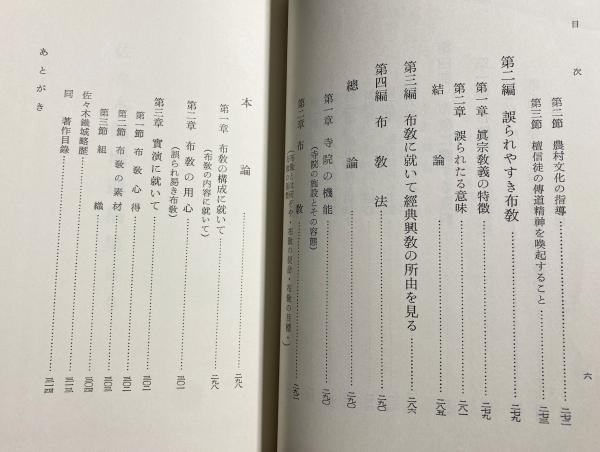 目次
第二節 農村文化の指導………二七二
第三節 檀信徒の傳道精神を喚起すること………二七三
第二編 誤られやすき布敎………二七九
第一章 眞宗敎義の特徵………二七九
第二章 誤られたる意味………二八一
結論………二八五
第三編 布敎に就いて經典興敎の所由を見る………二八六
第四編 布敎法………二九〇
總論………二九〇
第一章 寺院の機能………二九〇
(寺院の施設とその容態)
第二章 布敎………二九二
六
本論………二九八
第一章 布敎の構成に就いて………二九八
(布敎の内容に就いて)
第二章 布敎の用心………三〇一
(誤られ易き布敎)
第三章 實演に就いて………三〇二
第一節 布敎心得………三〇二
第二節 布敎の素材………三〇二
第三節 組織………三〇三
佐々木鐵城略歷………三〇四
同 著作目錄………三一三
あとがき………三一四